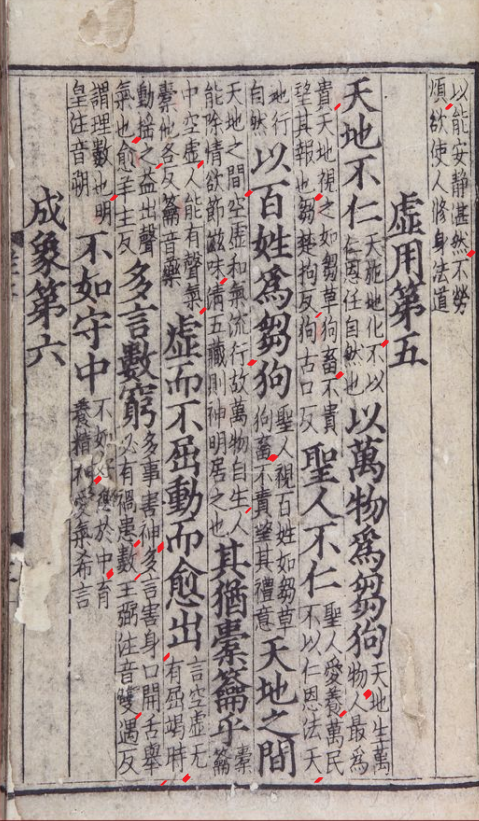 以能安静甚然不勞
煩欲使人修身法道
虛用第五
天地不仁天施地化不以仁恩任自然也以萬物爲芻狗天地生萬物人最爲
貴天地視之如芻草狗畜不貴望其報也芻楚拘反狗古口反聖人不仁聖人愛養萬民不以仁恩法天
地行自然以百姓爲芻狗聖人視百姓如芻草狗畜不貴望其禮意天地之間
天地之間空虛和氣流行故萬物自生人能除情欲節滋味清五藏則神明居之也其猶橐籥乎橐籥
中空虛人能有聲氣橐他各反籥音藥虛而不屈動而愈出言空虛无有屈竭時
動搖之益出聲氣也愈羊主反多言數窮多事害神多言害身口開舌舉必有禍患數王弼注音雙遇反
謂理數也明皇注音朔不如守中不如於中育養精神愛氣希言
成象第六